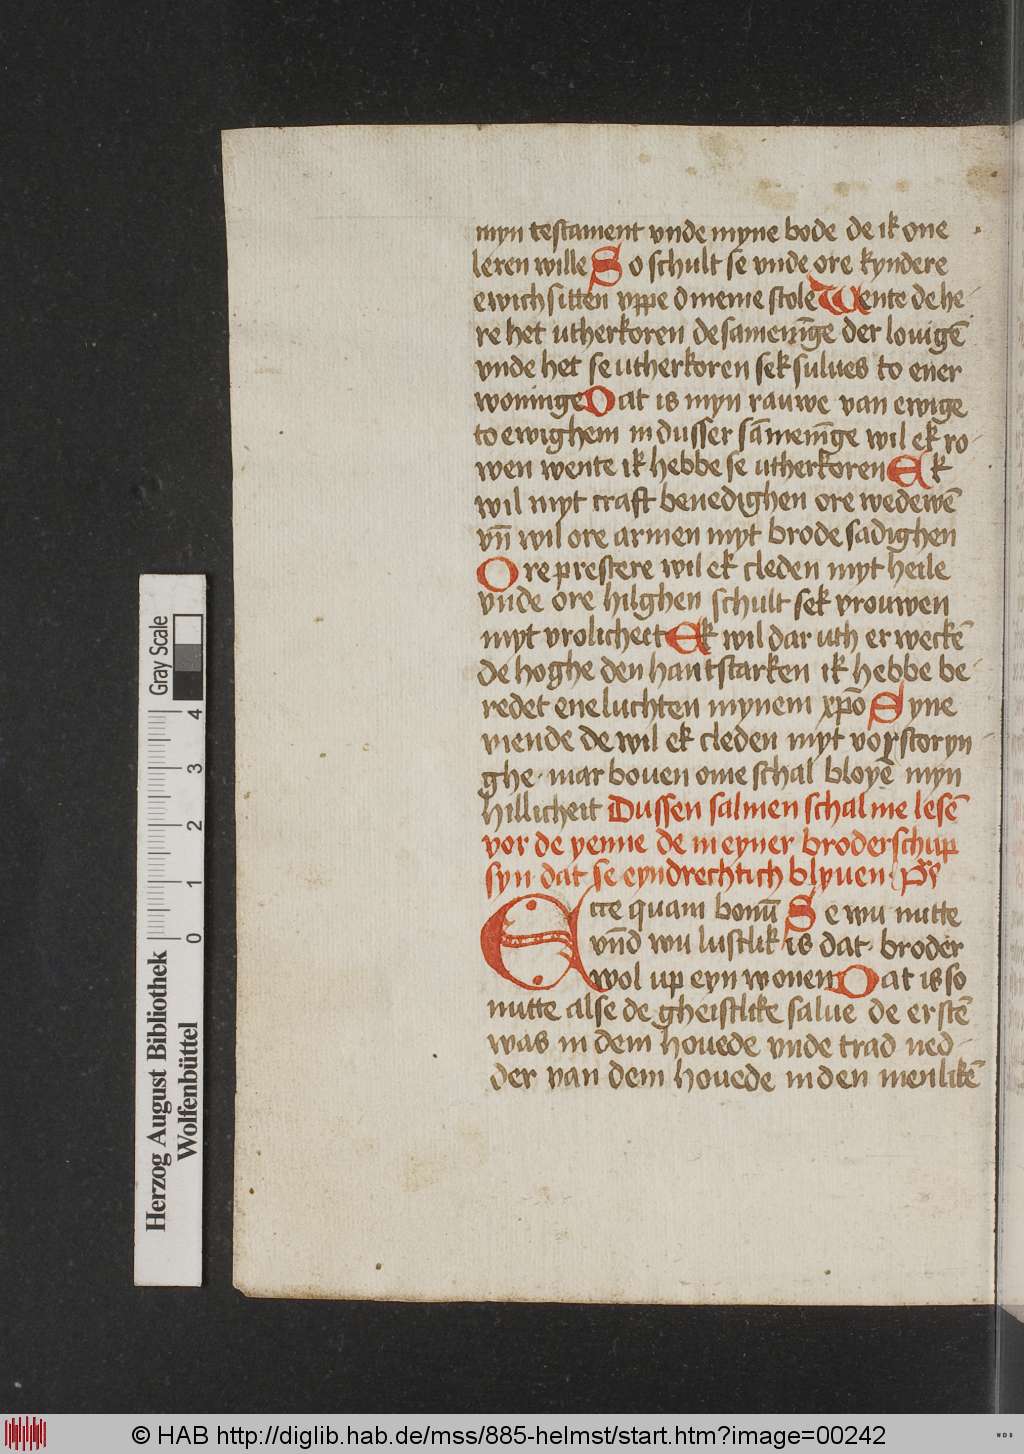 myn testament vnde myne bode de ik one
leren wille So schult se vnde ore kyndere
ewich sitten vppe dineme stole Wente de he-
re het utherkoren de samenīge der louigē
vnde het se utherkoren sek sulues to ener
woninge Dat is myn rauwe van ewige
to ewighem in dusser sāmenīge wil ek ro-
wen wente ik hebbe se utherkoren Ek
wil myt craft benedighen ore wedewē
vn̄ wil ore armen myt brode sadighen
Ore prestere wil ek cleden myt heile
vnde ore hilghen schult sek vrouwen
myt vrolicheit Ek wil dar uth erweckē
de hoghe den hantstarken ik hebbe be-
redet ene luchten mynem xpō Syne
viende de wil ek cleden myt vorstoryn-
ghe mar bouen ome schal bloyē myn
hillicheit Dussen salmen schal me lesē
vor de yenne de in eyner broderschup
syn dat se eyndrechtich blyuen ps̄
Ecce quam bonū Se wu nutte
vn̄d wu lustlik is dat broder
wol up eyn wonen Dat is so
nutte alse de gheistlike salue de erstē
was in dem houede vnde trad ned-
der van dem houede in den menlikē
Herzog August Bibliothek
Wolfenbüttel
Gray Scale
0 1 2 3 4
© HAB http://diglib.hab.de/mss/885-helmst/start.htm?image=00242